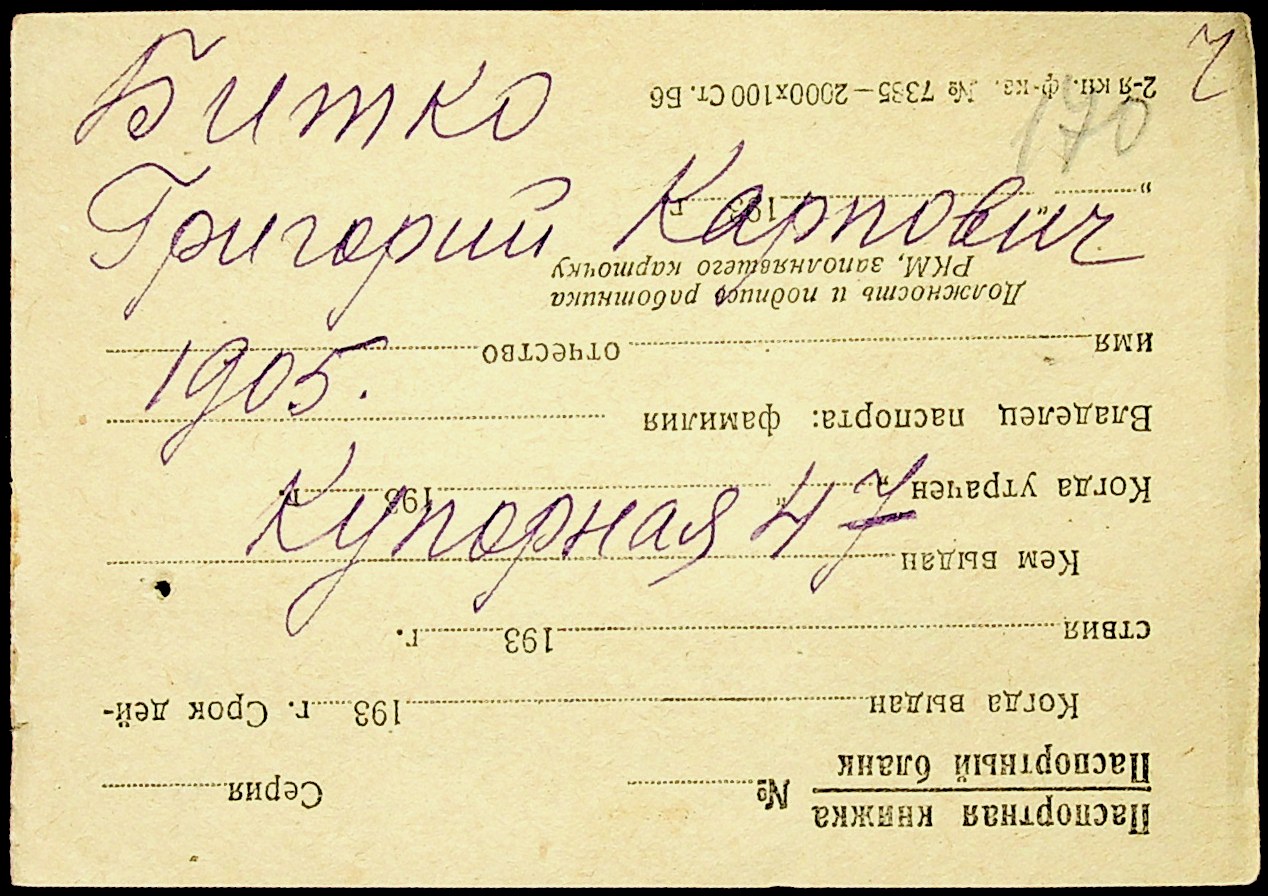 Битко
Григорий Карпович
1905.
Купорная 47
170
Паспортная книжка
Паспортный бланк
№ Серия
Когда выдан 193 г. Срок дей-
ствия 193 г.
Кем выдан
Когда утрачен „ “ 193 г.
Владелец паспорта: фамилия
имя отчество
Должность и подпись работника
РКМ, заполнявшего карточку
„ “ 193 г.
2-я кн. ф-ка. № 7385—2000х100 Ст. Б6